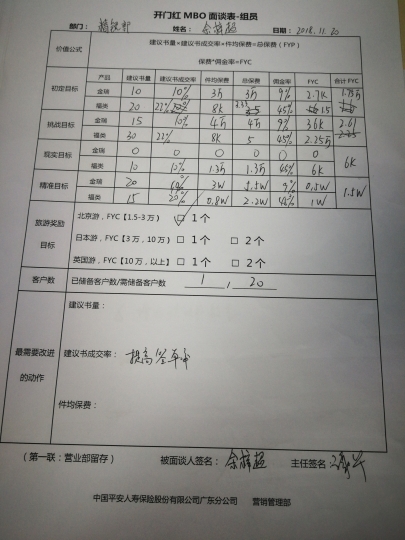 开门红 MBO 面谈表-组员
部门： 姓名：余梓超 日期：2018.11.20
价值公式 建议书量×建议书成交率×件均保费=总保费（FYP）
保费*佣金率=FYC
产品 建议书量 建议书成交率 件均保费 总保费 佣金率 FYC 合计 FYC
初定目标 金瑞 10 10% 3万 3万 9% 2.7K
福类 20 22% 8K 45% 15
挑战目标 金瑞 15 10% 4万 4万 9% 3.6K 2.61
福类 30 22% 8K 5 45% 2.25万
现实目标 金瑞 0 0 0 0 0 0 6K
福类 10 10% 1.3万 1.3万 45% 6K
精准目标 金瑞 20 3W 1.5W 9% 0.5W 1.5W
福类 15 20% 0.8W 2.2W 1W
旅游奖励目标 北京游，FYC【1.5-3万】 ✓ 1个
日本游，FYC【3万，10万】 □ 1个 □ 2个
英国游，FYC【10万，以上】 □ 1个 □ 2个
客户数 已储备客户数/需储备客户数 1 , 20
最需要改进的动作 建议书量：
建议书成交率：提高签单率
件均保费：
（第一联：营业部留存） 被面谈人签名：余梓超 主任签名：
中国平安人寿保险股份有限公司广东分公司 营销管理部